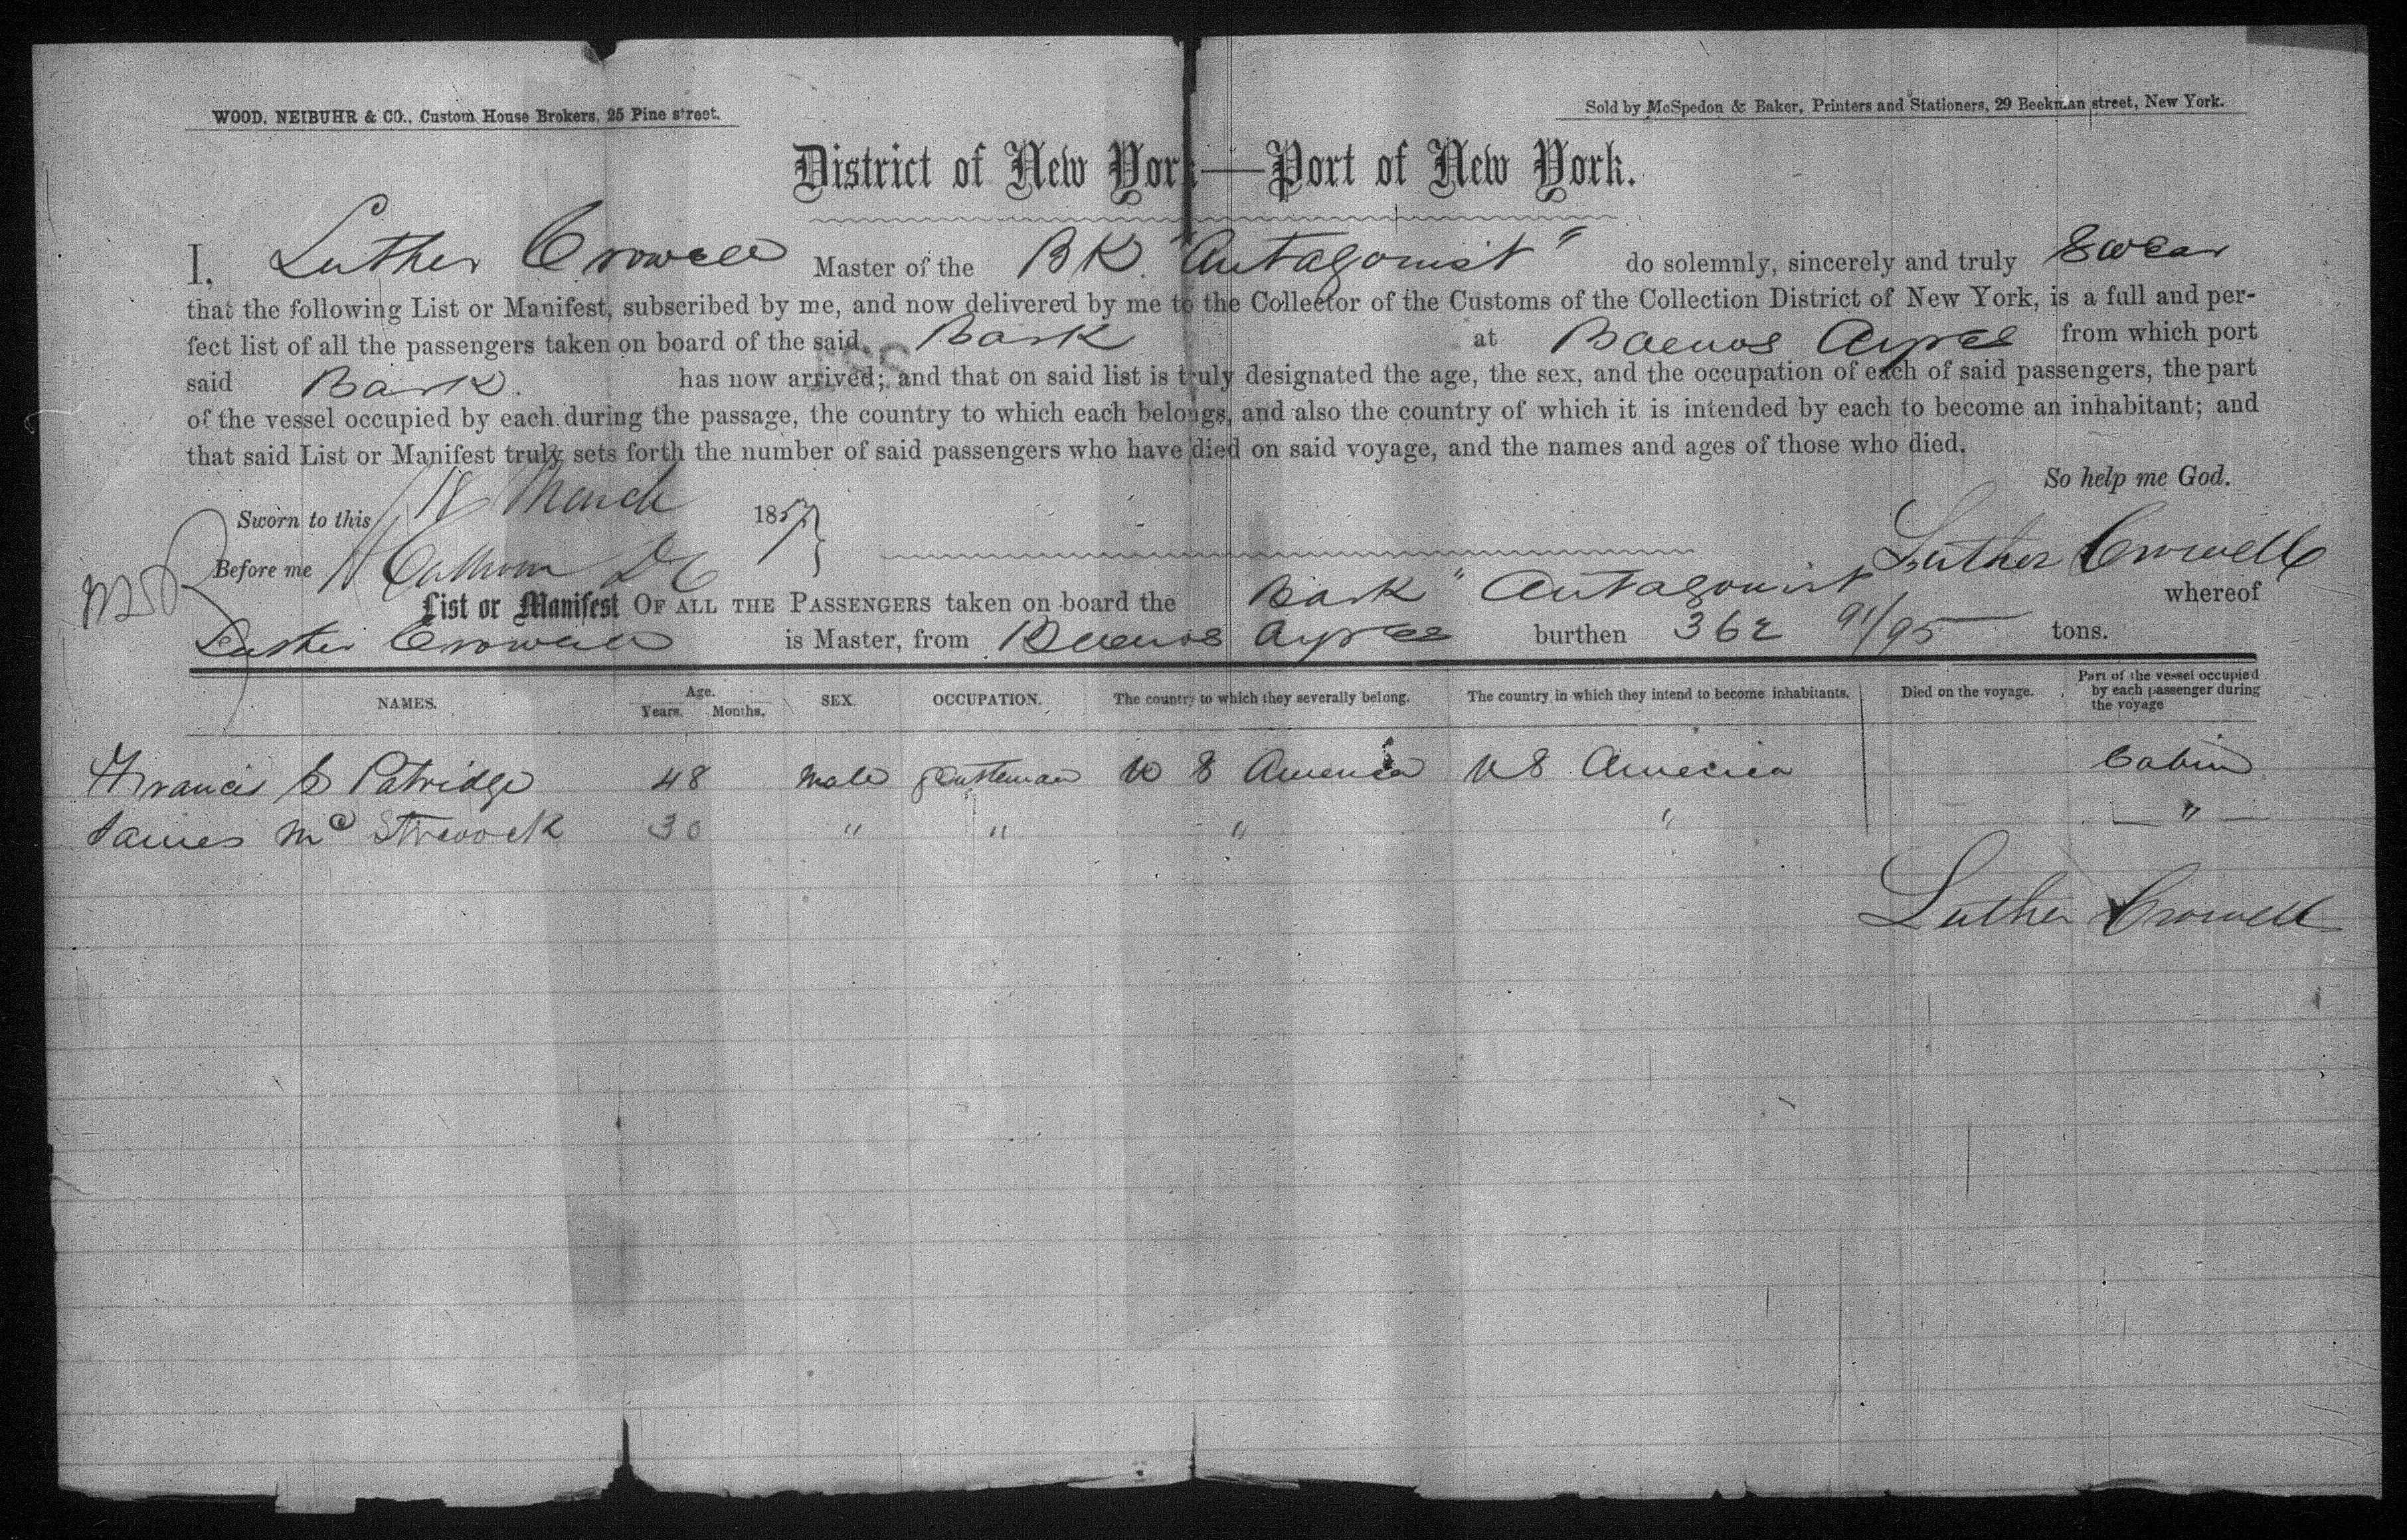 WOOD, NEIBUHR & CO., Custom House Brokers, 25 Pine street.
Sold by McSpedon & Baker, Printers and Stationers, 29 Beekman street, New York.
District of New York—Port of New York.
I, Luther Crowell Master of the BK. "Antagonist" do solemnly, sincerely and truly Swear
that the following List or Manifest, subscribed by me, and now delivered by me to the Collector of the Customs of the Collection District of New York, is a full and per-
fect list of all the passengers taken on board of the said Bark at Buenos Ayres from which port
said Bark. has now arrived; and that on said list is truly designated the age, the sex, and the occupation of each of said passengers, the part
of the vessel occupied by each during the passage, the country to which each belongs, and also the country of which it is intended by each to become an inhabitant; and
that said List or Manifest truly sets forth the number of said passengers who have died on said voyage, and the names and ages of those who died.
So help me God.
Sworn to this 18 March 1857
Luther Crowell
Before me
List or Manifest OF ALL THE PASSENGERS taken on board the Bark "Antagonist whereof
Luther Crowell is Master, from Buenos Ayres burthen 362 91/95 tons.
NAMES. Age. Years. Months. SEX. OCCUPATION. The country to which they severally belong. The country in which they intend to become inhabitants. Died on the voyage. Part of the vessel occupied by each passenger during the voyage
Francis Patridge 48 Male gentleman U S America U S America Cabin
James Mc 30 " " " " — " —
Luther Crowell